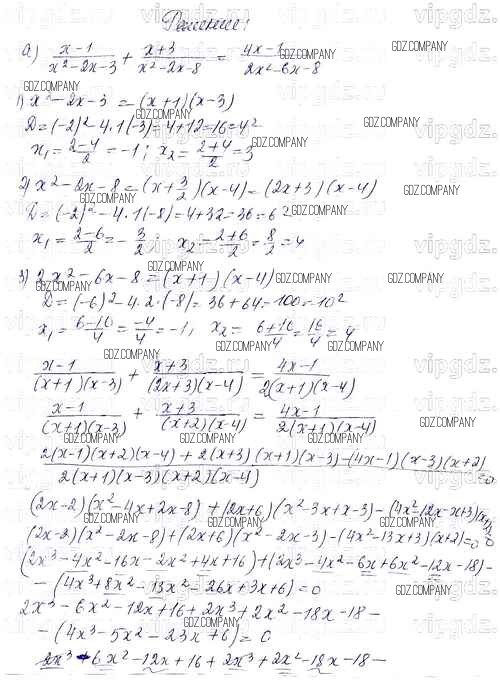 Решение:
а) (x-1)/(x²-2x-3) + (x+3)/(x²-2x-8) = (4x-1)/(2x²-6x-8)
1) x²-2x-3 = (x+1)(x-3)
D=(-2)²-4·1·(-3)=4+12=16=4²
x₁=(2-4)/2=-1; x₂=(2+4)/2=3
2) x²-2x-8=(x+3/2)(x-4)=(2x+3)(x-4)
D=(-2)²-4·1·(-8)=4+32=36=6²
x₁=(2-6)/2=-3/2; x₂=(2+6)/2=8/2=4
3) 2x²-6x-8=(x+1)(x-4)
D=(-6)²-4·2·(-8)=36+64=100=10²
x₁=(6-10)/4=-4/4=-1, x₂=(6+10)/4=16/4=4
(x-1)/((x+1)(x-3)) + (x+3)/((2x+3)(x-4)) = (4x-1)/(2(x+1)(x-4))
(x-1)/((x+1)(x-3)) + (x+3)/((x+2)(x-4)) = (4x-1)/(2(x+1)(x-4))
(2(x-1)(x+2)(x-4)+2(x+3)(x+1)(x-3)-(4x-1)(x-3)(x+2))/(2(x+1)(x-3)(x+2)(x-4))=0
(2x-2)(x²-4x+2x-8)+(2x+6)(x²-3x+x-3)-(4x²-12x-x+3)(x+2)=0
(2x-2)(x²-2x-8)+(2x+6)(x²-2x-3)-(4x²-13x+3)(x+2)=0
(2x³-4x²-16x-2x²+4x+16)+(2x³-4x²-6x+6x²-12x-18)-
-(4x³+8x²-13x²-26x+3x+6)=0
2x³-6x²-12x+16+2x³+2x²-18x-18-
-(4x³-5x²-23x+6)=0
2x³-6x²-12x+16+2x³+2x²-18x-18-
GDZ.COMPANY
vipgdz.ru